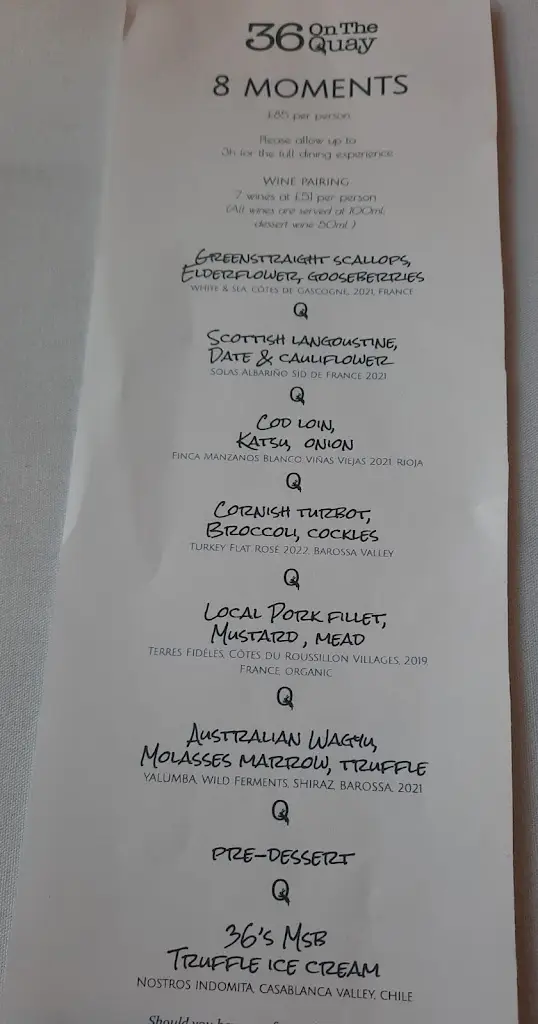 36 On The
Quay
8 MOMENTS
£85 per person
Please allow up to
3h for the full dining experience
WINE PAIRING
7 wines at £51 per person
(All wines are served at 100ml,
dessert wine 50ml)
GREENSTRAIGHT SCALLOPS,
ELDERFLOWER, GOOSEBERRIES
WHITE & SEA, CÔTES DE GASCOGNE, 2021, FRANCE
Q
SCOTTISH LANGOUSTINE,
DATE & CAULIFLOWER
SOLAS ALBARIÑO SID DE FRANCE 2021
Q
COD LOIN,
KATSU, ONION
FINCA MANZANOS BLANCO VIÑAS VIEJAS 2021 RIOJA
Q
CORNISH TURBOT,
BROCCOLI, COCKLES
TURKEY FLAT ROSÉ 2022, BAROSSA VALLEY
Q
LOCAL PORK FILLET,
MUSTARD, MEAD
TERRES FIDÈLES, CÔTES DU ROUSSILLON VILLAGES, 2019
FRANCE, ORGANIC
Q
AUSTRALIAN WAGYU,
MOLASSES MARROW, TRUFFLE
YALUMBA, WILD FERMENTS, SHIRAZ, BAROSSA, 2021
Q
PRE-DESSERT
Q
36'S MSB
TRUFFLE ICE CREAM
NOSTROS INDOMITA, CASABLANCA VALLEY, CHILE
Should you